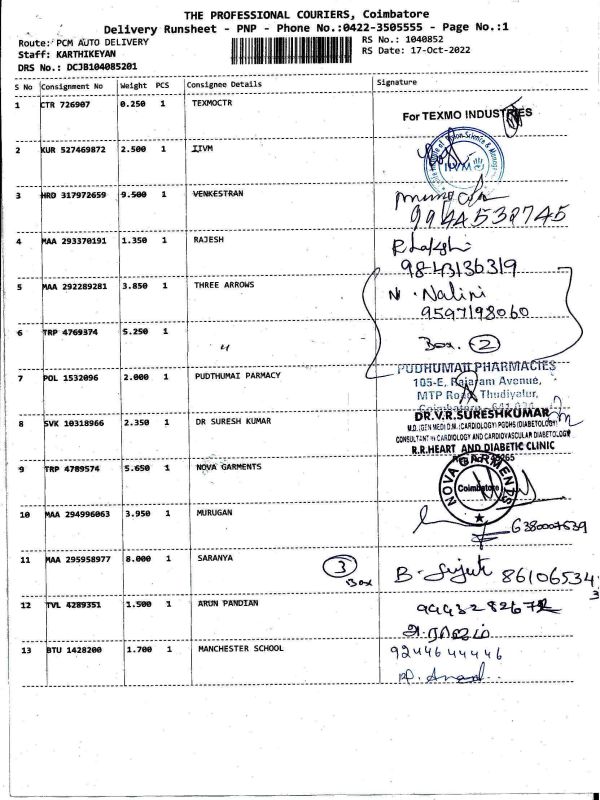 THE PROFESSIONAL COURIERS, Coimbatore
Delivery Runsheet - PNP - Phone No.:0422-3505555 - Page No.:1
Route: PCM AUTO DELIVERY
RS No.: 1040852
Staff: KARTHIKEYAN
RS Date: 17-Oct-2022
DRS No.: DCJB104085201
S No Consignment No Weight PCS Consignee Details Signature
1 CTR 726907 0.250 1 TEXMOCTR For TEXMO INDUSTRIES
2 KUR 527469872 2.500 1 IIVM
IIVM
3 HRD 317972659 9.500 1 VENKESTRAN
9944532745
4 MAA 293370191 1.350 1 RAJESH
9843136319
5 MAA 292289281 3.850 1 THREE ARROWS N. Nalini
9597198060
6 TRP 4769374 5.250 1 " Box. 2
7 POL 1532096 2.000 1 PUDTHUMAI PARMACY PUDHUMAII PHARMACIES
105-E, Rajaram Avenue,
MTP Road, Thudiyalur,
8 SVK 10318966 2.350 1 DR SURESH KUMAR DR.V.R.SURESHKUMAR
M.D.(GEN MED) D.M.(CARDIOLOGY) PGDHS (DIABETOLOGY)
CONSULTANT IN CARDIOLOGY AND CARDIOVASCULAR DIABETOLOGY
R.R.HEART AND DIABETIC CLINIC
9 TRP 4789574 5.650 1 NOVA GARMENTS NOVA GARMENTS
Coimbatore
10 MAA 294996063 3.950 1 MURUGAN
6380007639
11 MAA 295958977 8.000 1 SARANYA 3 Box B. Sujit 86106534
3
12 TVL 4289351 1.500 1 ARUN PANDIAN
13 BTU 1428200 1.700 1 MANCHESTER SCHOOL 9244644446